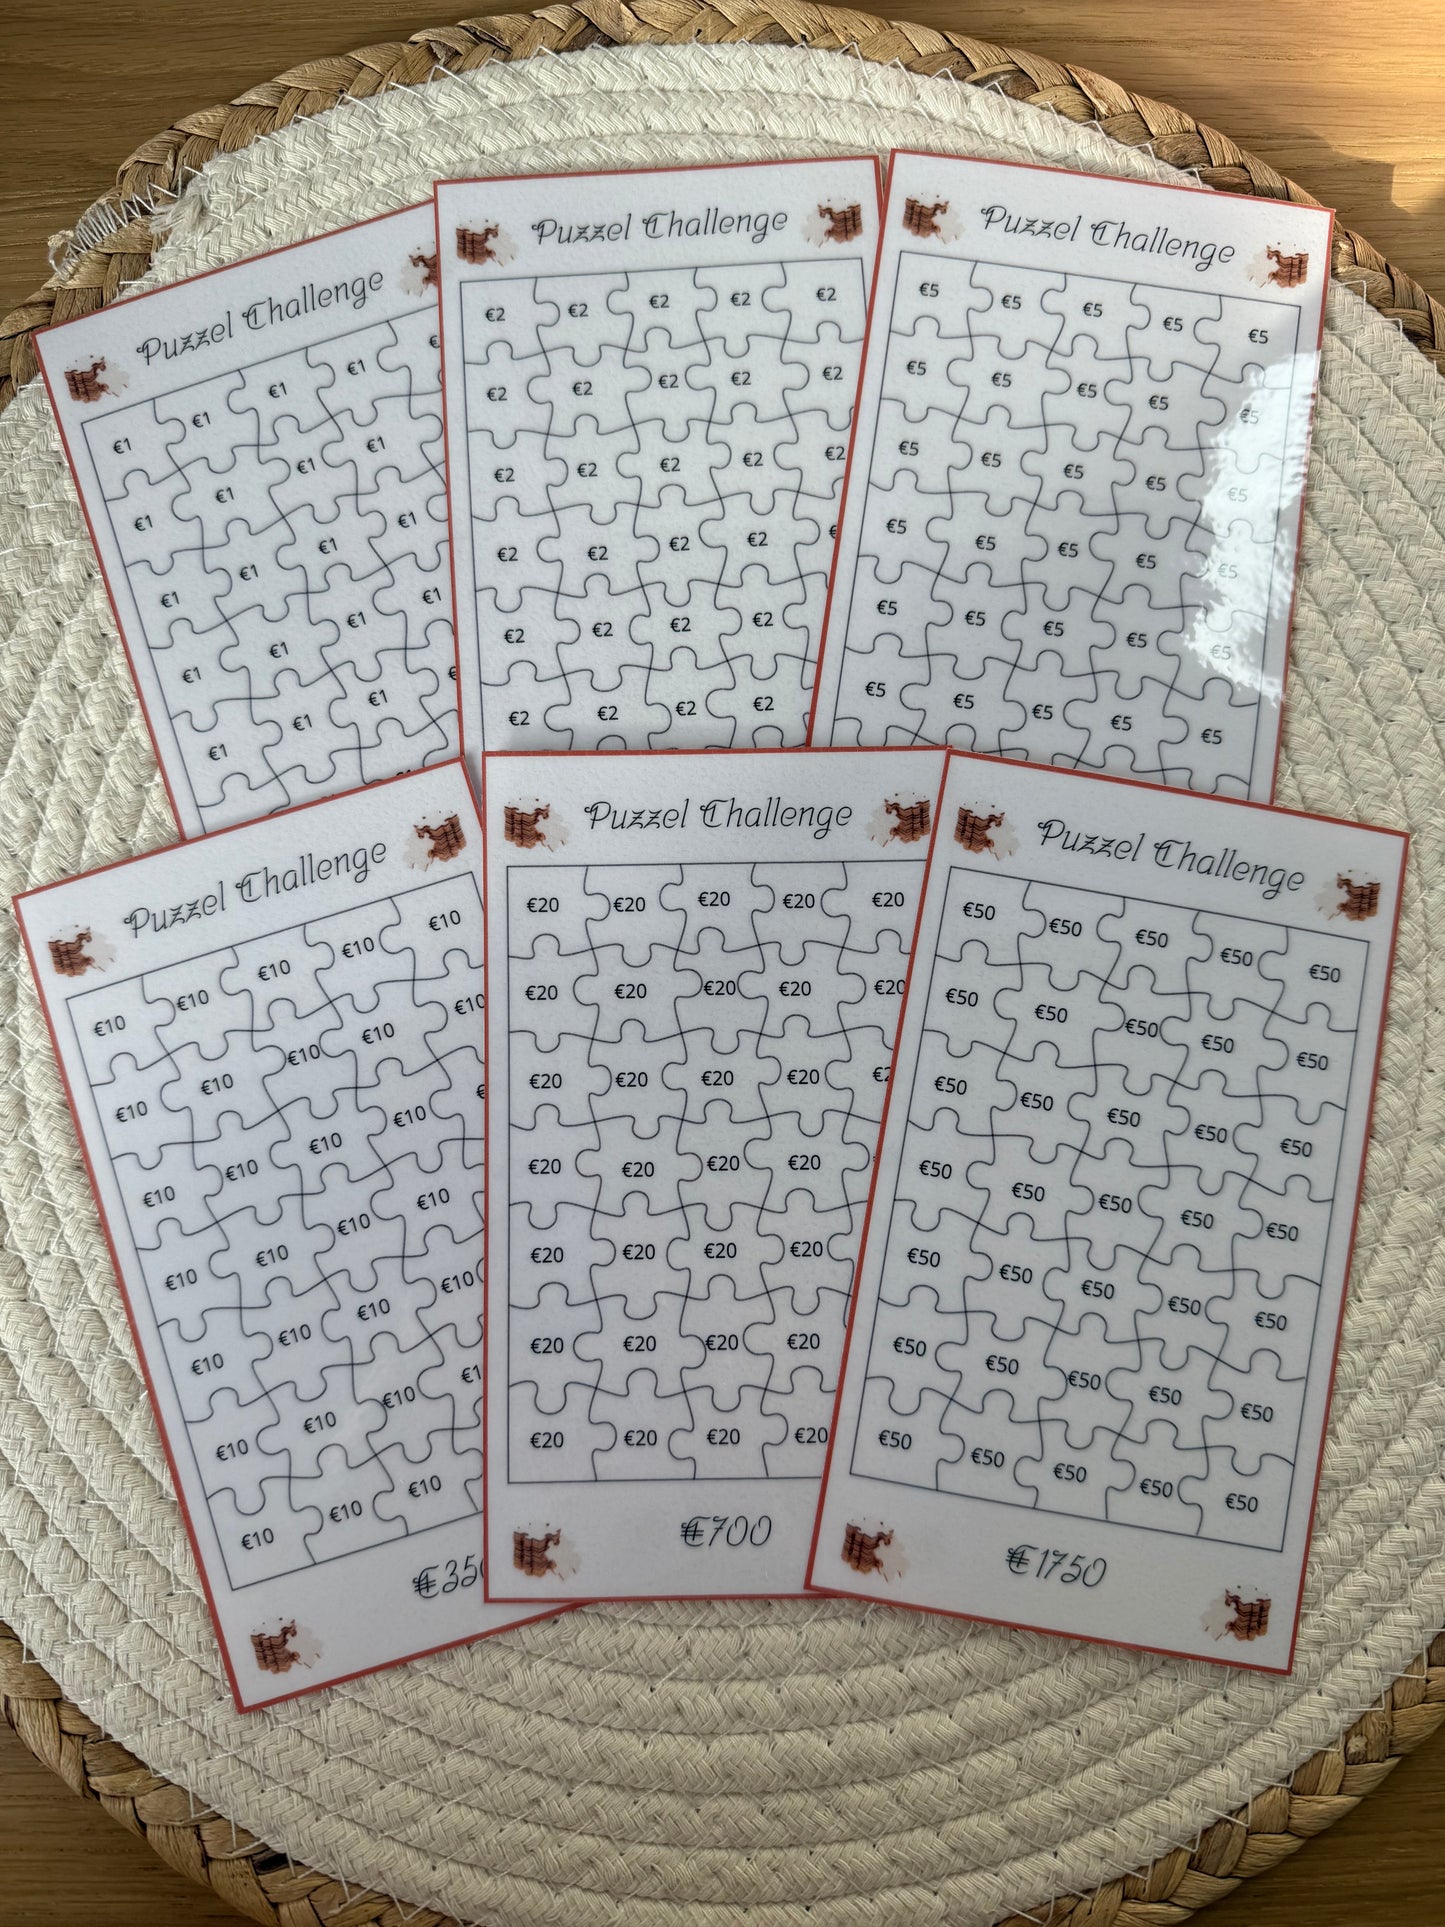 Puzzel Challenge
€1 €1 €1 €1 €
€1 €1 €1 €1
€1 €1 €1 €1
€1 €1 €1 €1
€1 €1 €1
Puzzel Challenge
€2 €2 €2 €2 €2
€2 €2 €2 €2 €2
€2 €2 €2 €2 €2
€2 €2 €2 €2 €
€2 €2 €2 €2
€2 €2 €2 €2
Puzzel Challenge
€5 €5 €5 €5 €5
€5 €5 €5 €5 €5
€5 €5 €5 €5 €5
€5 €5 €5 €5 €5
€5 €5 €5 €5 €5
€5 €5 €5 €5 €5
Puzzel Challenge
€10 €10 €10 €10 €10
€10 €10 €10 €10 €10
€10 €10 €10 €10 €
€10 €10 €10 €10
€10 €10 €10 €10
€10 €10 €10 €1
€10 €10 €10
€350
Puzzel Challenge
€20 €20 €20 €20 €20
€20 €20 €20 €20 €20
€20 €20 €20 €20 €2
€20 €20 €20 €20
€20 €20 €20 €20
€20 €20 €20 €20
€20 €20 €20 €20
€700
Puzzel Challenge
€50 €50 €50 €50 €50
€50 €50 €50 €50 €50
€50 €50 €50 €50 €50
€50 €50 €50 €50 €50
€50 €50 €50 €50 €50
€50 €50 €50 €50 €50
€50 €50 €50 €50 €50
€1750